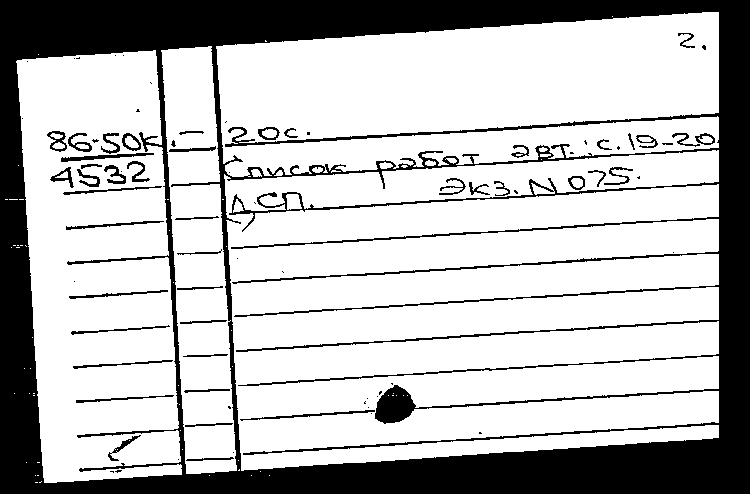 2.
86-50к.- 20с.
4532 Список работ авт.: с.19-20.
ДСП. Экз. N 075.